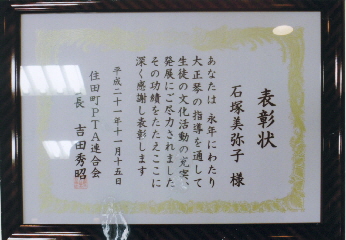 表彰状
石塚美弥子 様
あなたは 永年にわたり
大正琴の指導を通して
生徒の文化活動の充実、
発展にご尽力されました
その功績をたたえここに
深く感謝し表彰します
平成二十一年十一月十五日
住田町PTA連合会
長 吉田秀昭